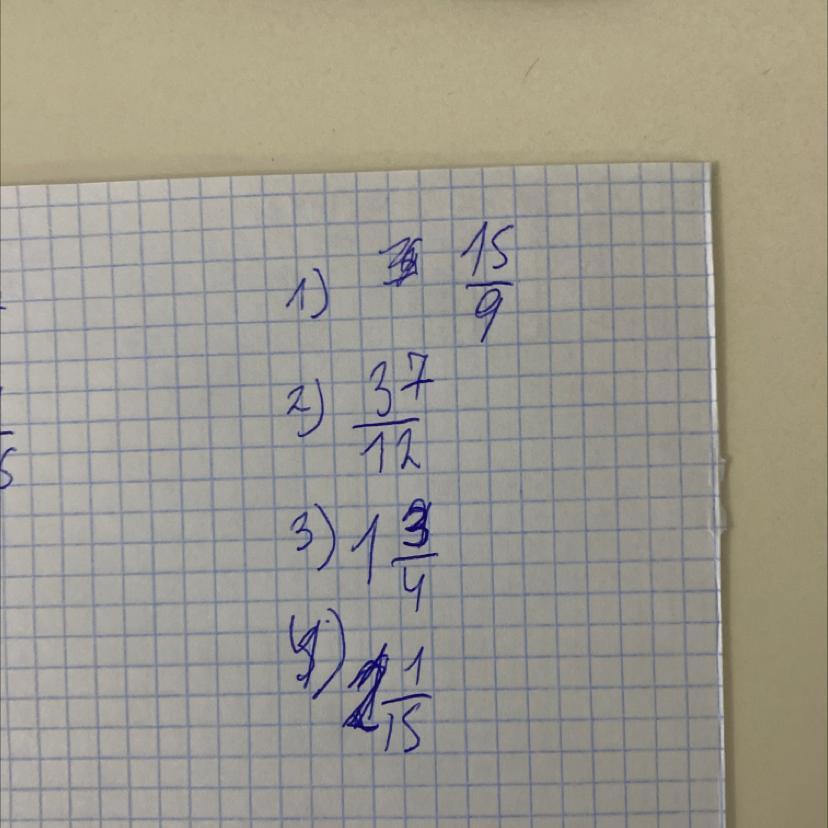 1) 15/9
2) 37/12
3) 1 3/4
4) 2 1/15